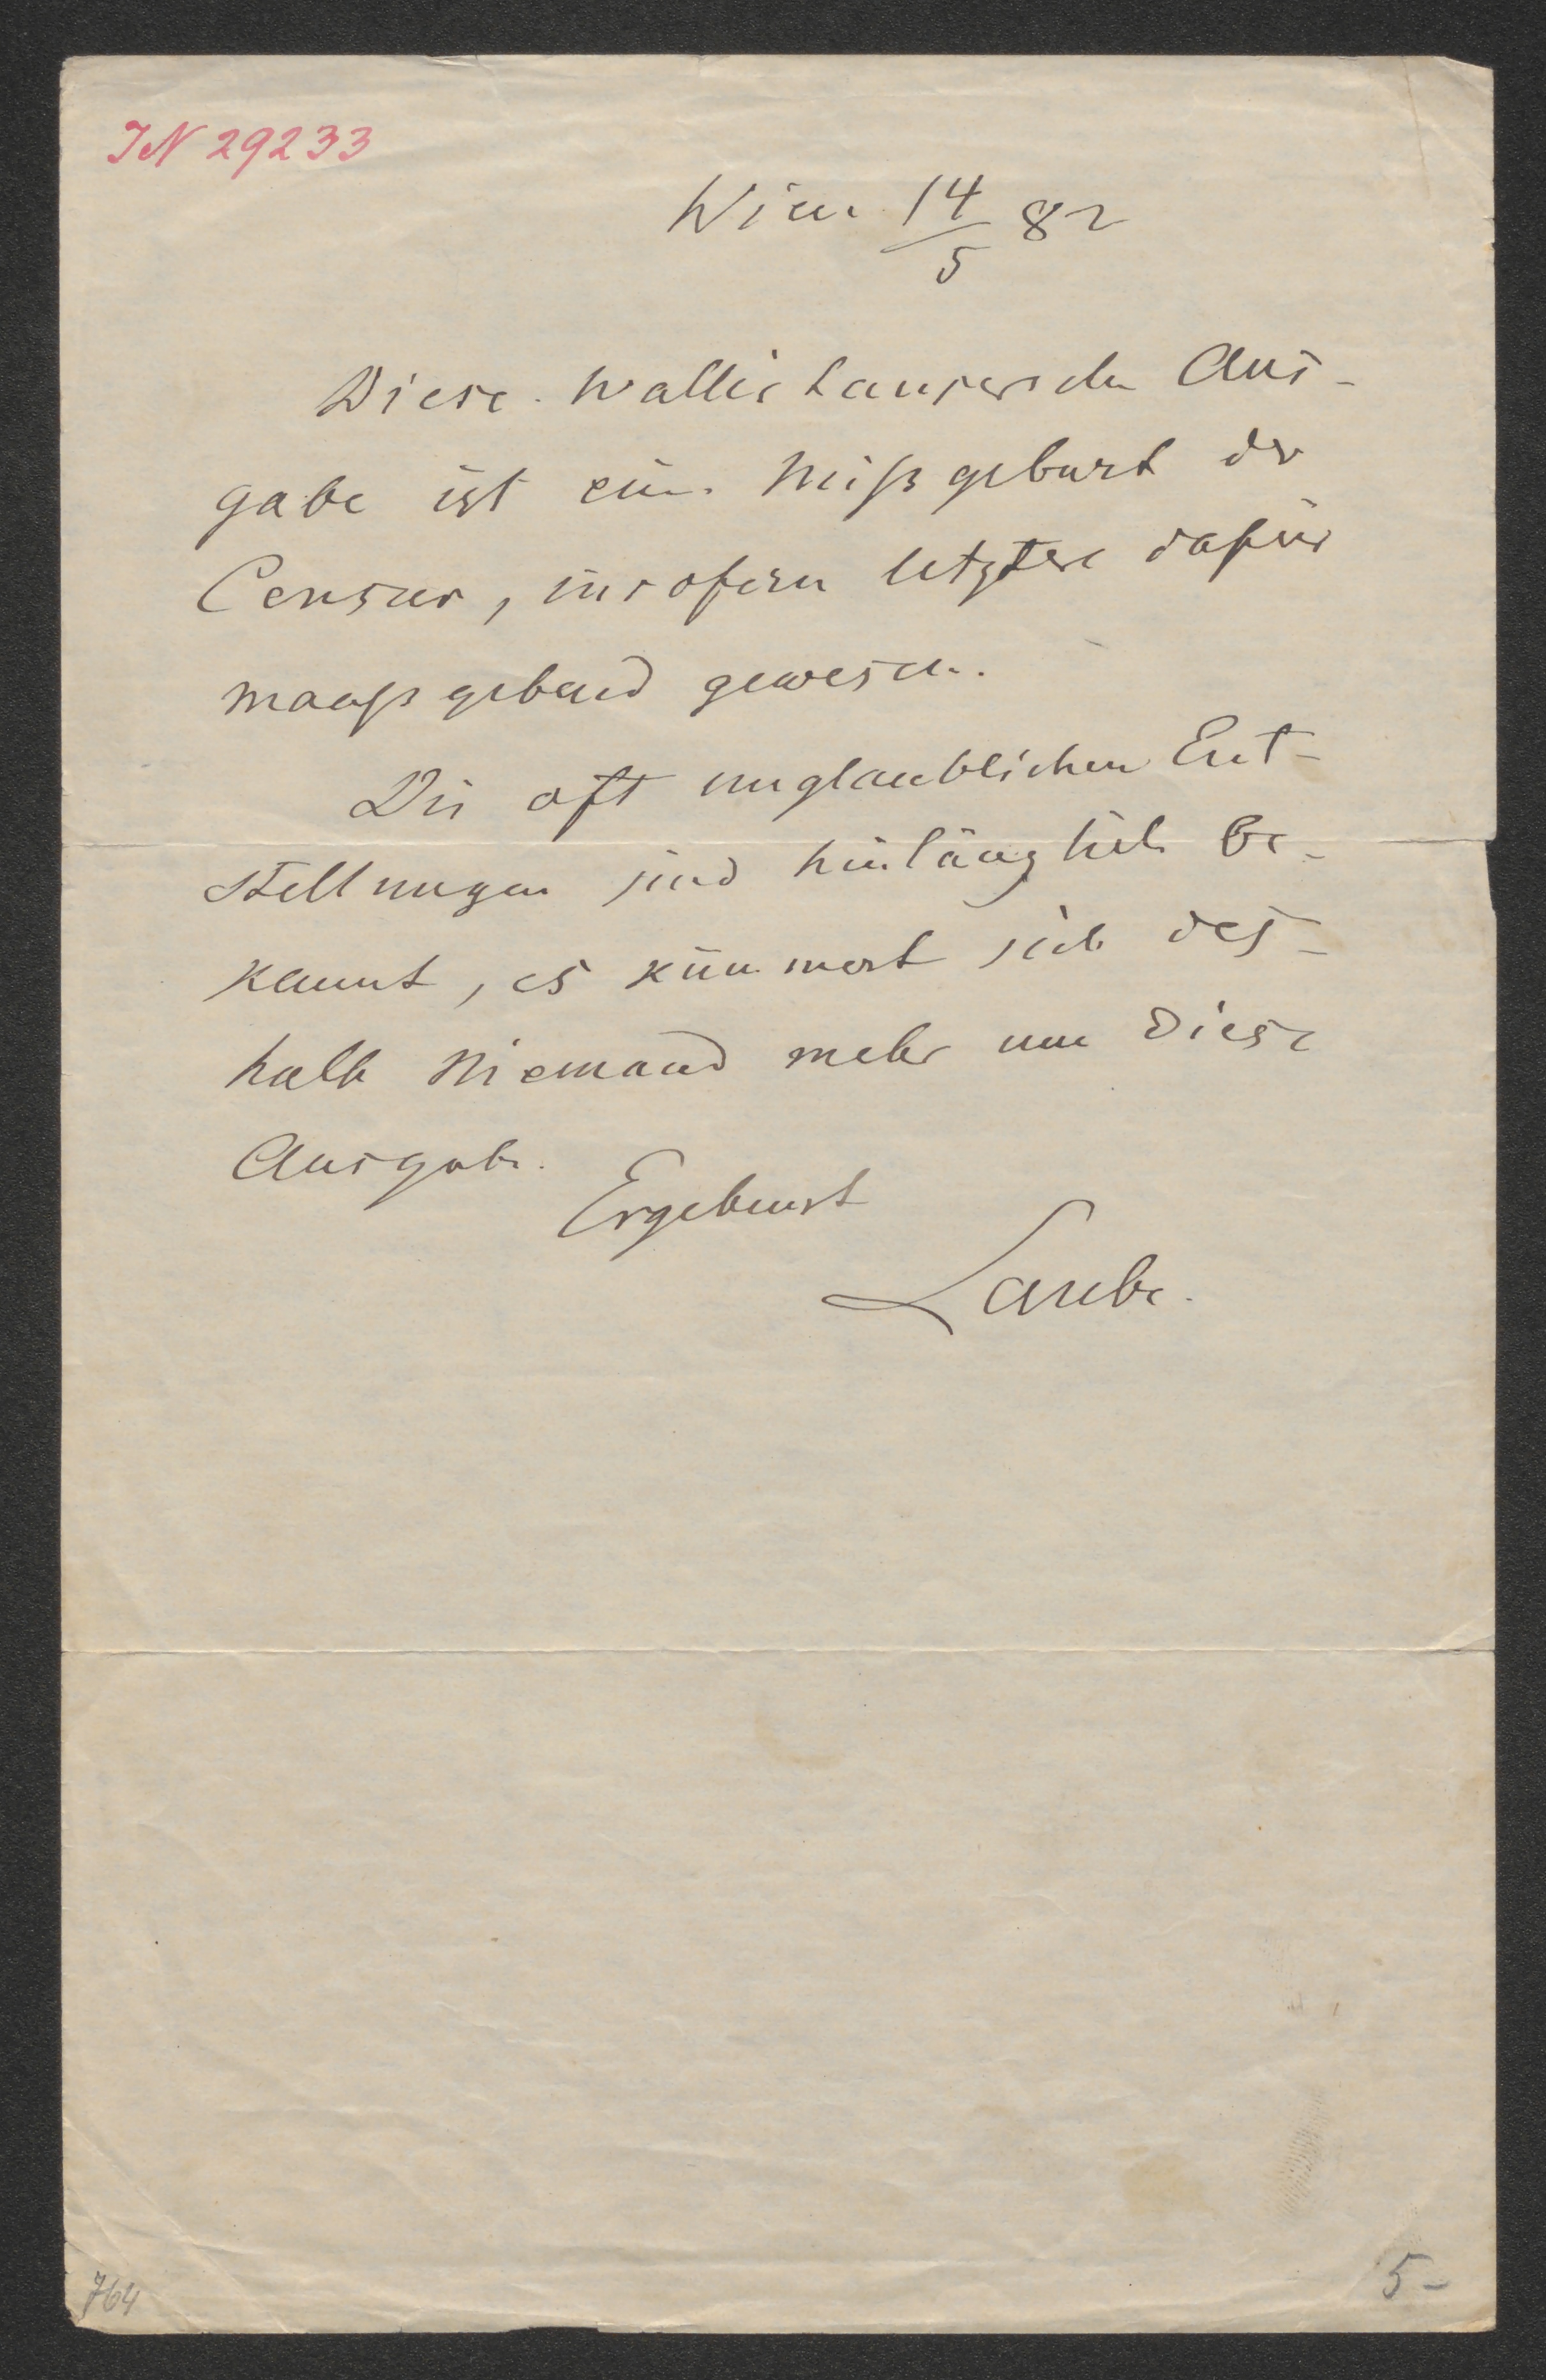 IN 29233
Wien 14/5 82
Diese Wallishaussersche Aus-
gabe ist eine Mißgeburt der
Censur, insofern letztere dafür
maaßgebend gewesen.
Die oft unglaublichen Ent-
stellungen sind hinlänglich be-
kannt, es kümmert sich des-
halb Niemand mehr um diese
Ausgabe.
Ergebenst
Laube.
764
5-